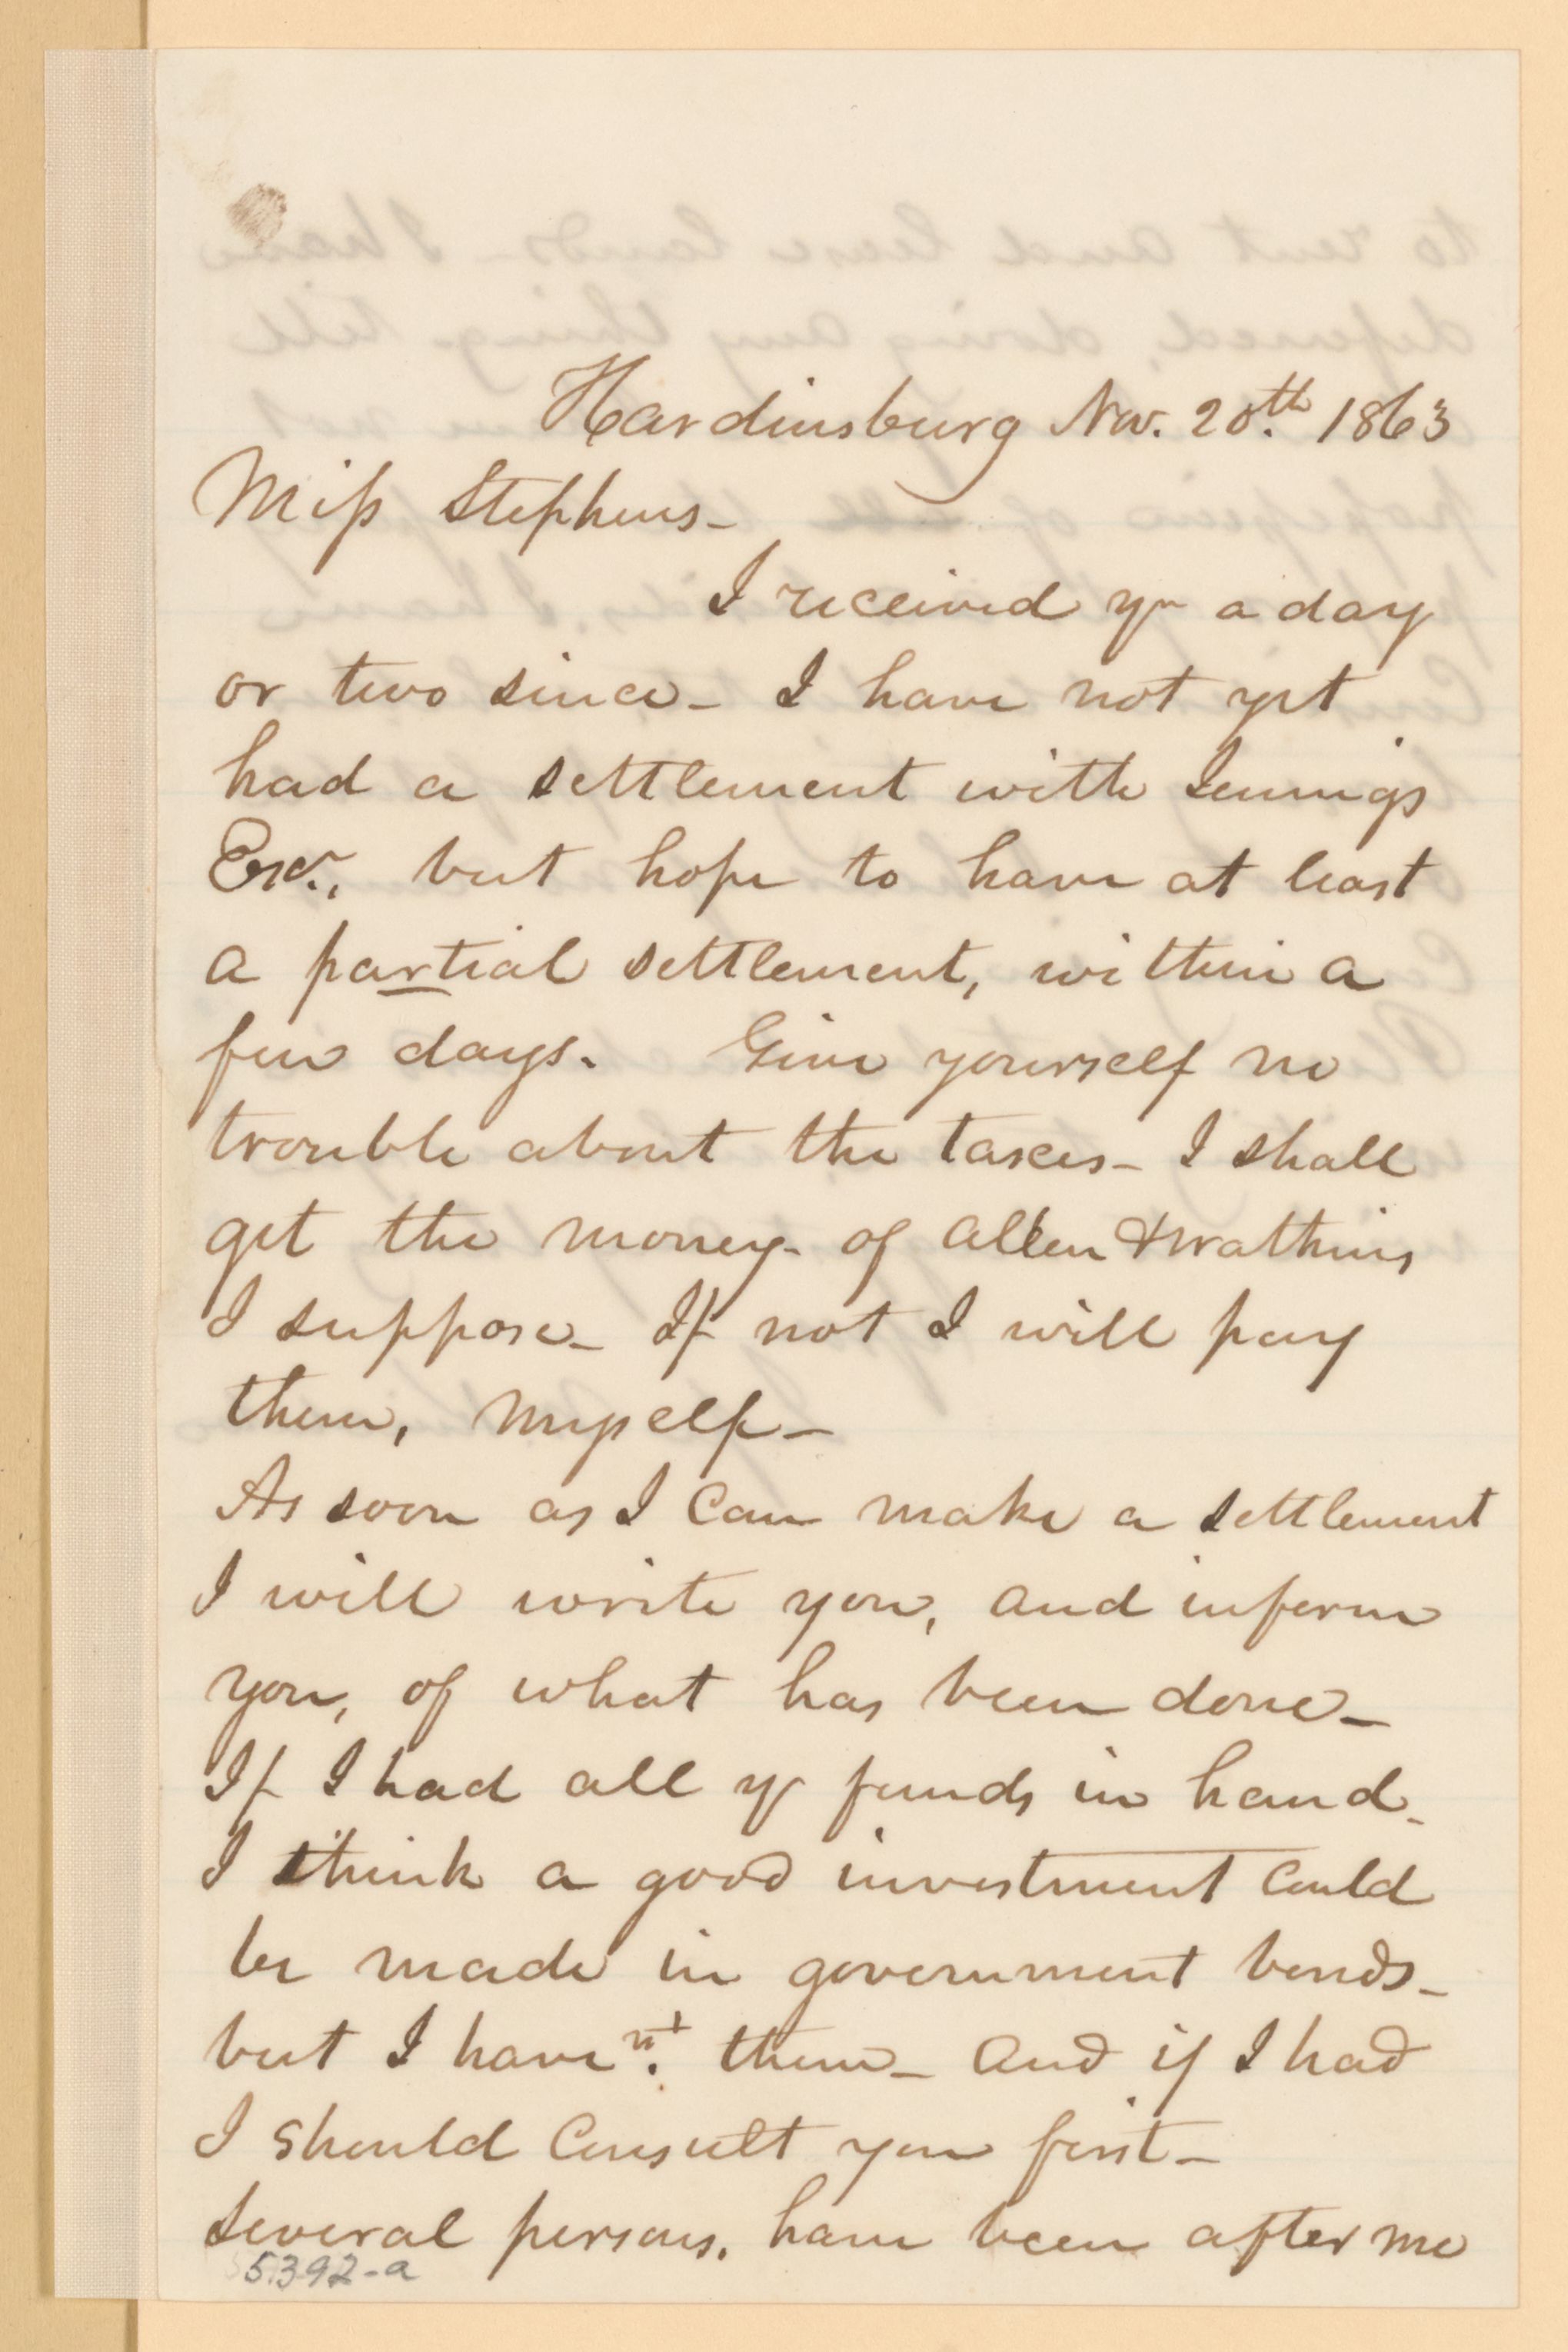 Hardinsburg Nov. 20th. 1863
Miss Stephens-
I received yr a day
or two since- I have not yet
had a settlement with Jennings
Exr., but hope to have at least
a partial settlement, within a
few days. Give yourself no
trouble about the taxes- I shall
get the money- of Allen & Wathins
I suppose- If not I will pay
them, myself-
As soon as I can make a settlement
I will write you, and inform
you, of what has been done-
If I had all yr funds in hand-
I think a good investment could
be made in government bonds-
but I have nt. them- and if I had
I should consult you first-
Several persons, have been after me
5392-a